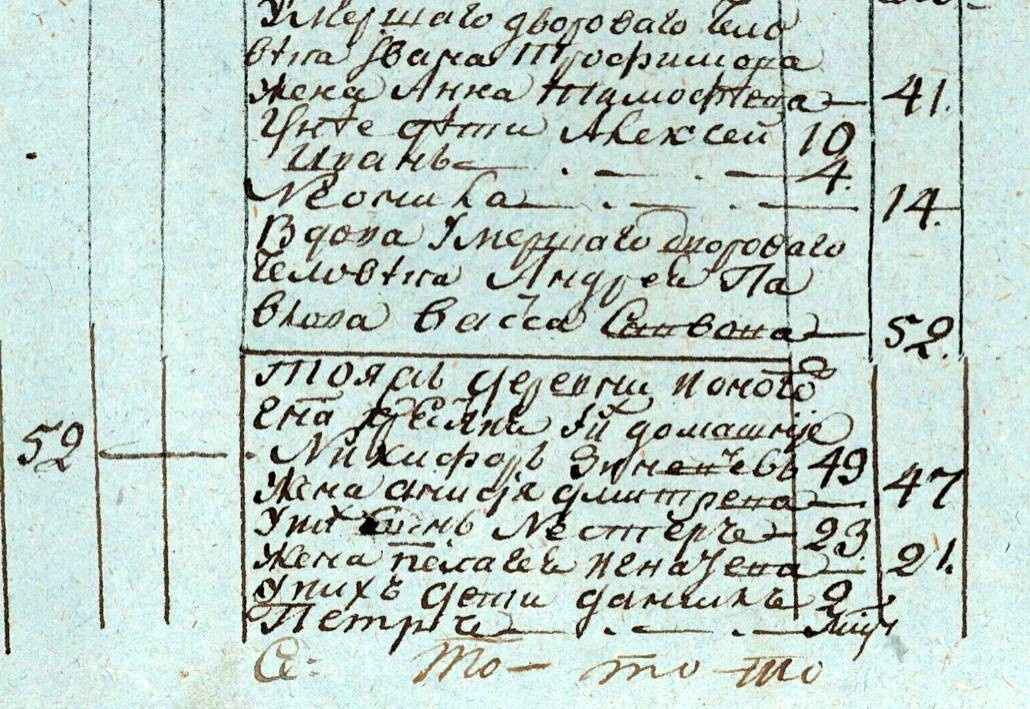 Умершаго дворового чело
вѣка Ивана Трофимова
жена Анна Тимофѣева — 41.
У нее дѣти Алексей 10
Иванъ — 4.
Неонила — 14.
Вдова Умершаго дворового
человѣка Андрея Па
влова Васса — 52.
Тояжъ деревни
крестьяне и домашніе
52 — Никифоръ 49
жена Анисья Дмитрева — 47
У них сынъ Нестеръ — 23
жена Пелагея Игнатева — 21.
У нихъ дети Данилъ 2
Петръ —
Се: то — то — то